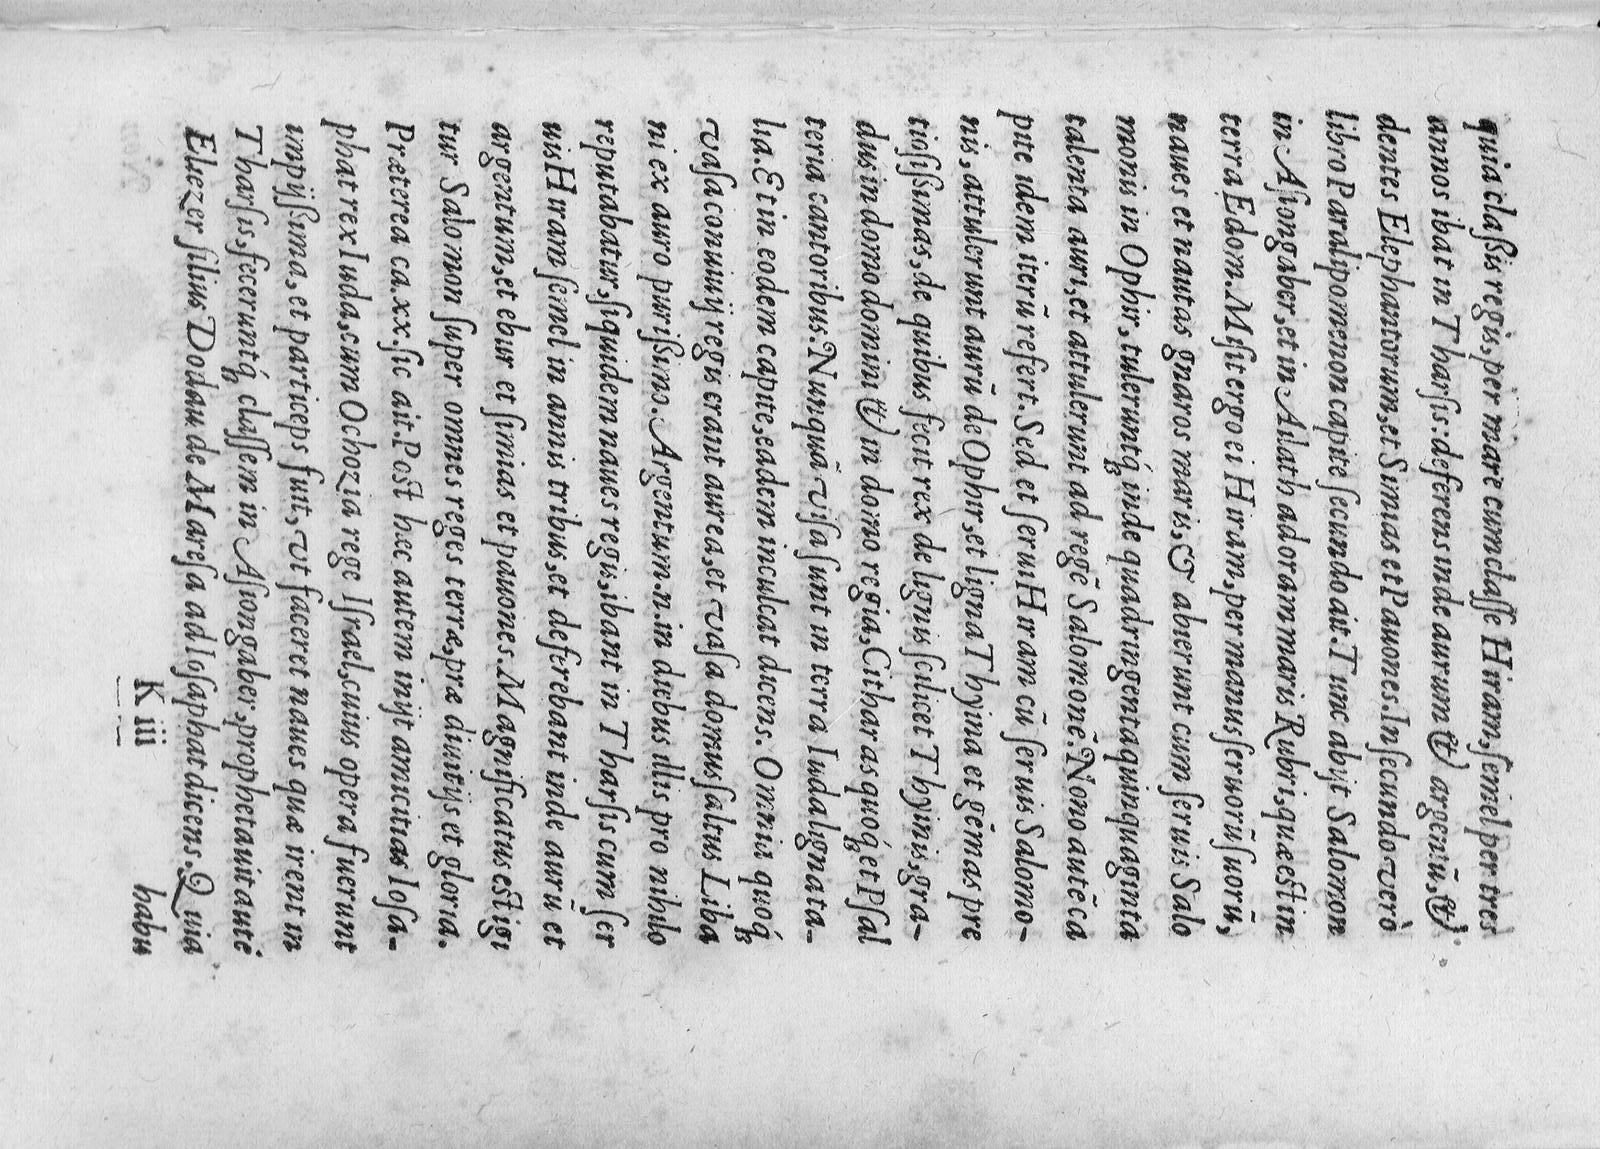 quia claſſis regis, per mare cum claſſe Hiram, ſemel per tres
annos ibat in Tharſis: deferens inde aurum & argentũ, &
dentes Elephantorum, et Simias et Pauones. In ſecundo verò
libro Paralipomenon capite ſecundo ait. Tunc abijt Salomon
in Aſiongaber, et in Ailath ad oram maris Rubri, quæ eſt in
terra Edom. Miſit ergo ei Hiram, per manus ſeruorũ ſuorũ,
naues et nautas gnaros maris, & abierunt cum ſeruis Salo
monis in Ophir, tuleruntq́; inde quadringenta quinquaginta
talenta auri, et attulerunt ad regẽ Salomonẽ. Nono autẽ ca
pite idem iterũ refert. Sed et ſerui Hiram cũ ſeruis Salomo-
nis, attulerunt aurũ de Ophir, et ligna Thyina et gẽmas pre
tioſiſſimas, de quibus fecit rex de lignis ſcilicet Thyinis, gra-
dus in domo domini & in domo regia, Citharas quoq́; et Pſal
teria cantoribus. Nunquã viſa ſunt in terra Iuda ligna ta-
lia. Et in eodem capite, eadem inculcat dicens. Omnia quoq́;
vaſa conuiuij regis erant aurea, et vaſa domus ſaltus Liba
ni ex auro puriſſimo. Argentum.n. in diebus illis pro nihilo
reputabatur, ſiquidem naues regis, ibant in Tharſis cum ſer
uis Hiram ſemel in annis tribus, et deferebant inde aurũ et
argentum, et ebur et ſimias et pauones. Magnificatus eſt igi
tur Salomon ſuper omnes reges terræ, præ diuitijs et gloria.
Præterea ca.xx. ſic ait. Poſt hæc autem inijt amicitias Ioſa-
phat rex Iuda, cum Ochozia rege Iſrael, cuius opera fuerunt
impijſſima, et particeps fuit, vt faceret naues quæ irent in
Tharſis, feceruntq́; claſſem in Aſiongaber, prophetauit autẽ
Eliezer filius Dodau de Mareſa ad Ioſaphat dicens. Quia
K iii
habu